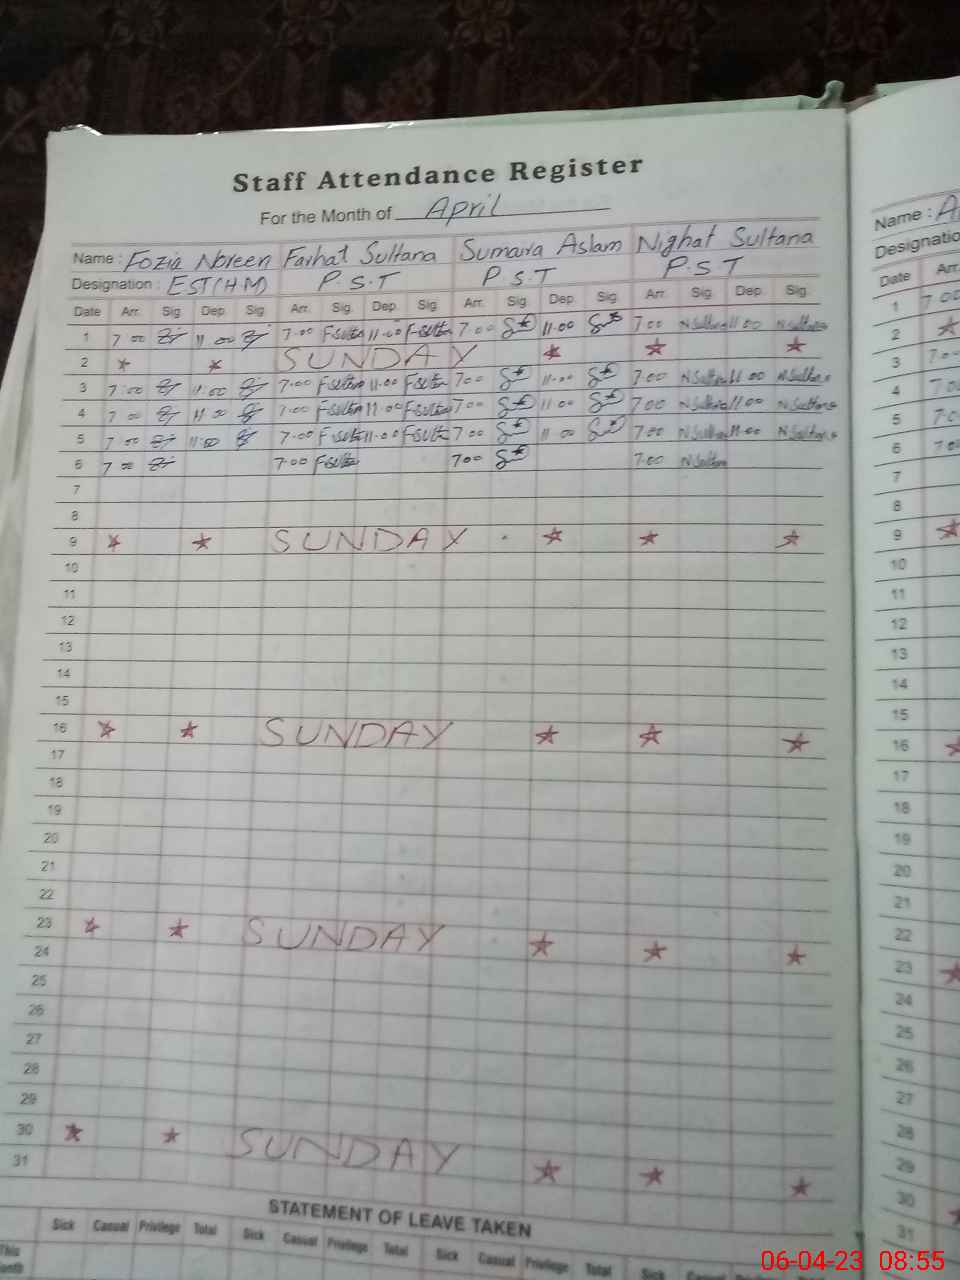 Staff Attendance Register
For the Month of April
Name : Fozia Noreen Farhat Sultana Sumaira Aslam Nighat Sultana
Designation : EST(HM) P.S.T P.S.T P.S.T
Date Arr. Sig Dep. Sig. Arr. Sig. Dep. Sig. Arr. Sig. Dep. Sig. Arr. Sig. Dep. Sig.
1 7 00 11 00 7.00 F.Sultan 11.00 F.Sultan 7.00 11.00 7.00 N Sultana 11 00 N Sultana
2 SUNDAY
3 7:00 11:00 7.00 F.Sultan 11.00 F.Sultan 7.00 11.00 7.00 N Sultana 11 00 N Sultana
4 7 00 11 00 7.00 F.Sultan 11.00 F.Sultan 7.00 11.00 7.00 N Sultana 11.00 N Sultana
5 7 00 11:00 7.00 F.Sultan 11.00 F.Sultan 7.00 11.00 7.00 N Sultana 11.00 N Sultana
6 7 00 7.00 F.Sultan 7.00 7.00 N Sultana
7
8
9 SUNDAY
10
11
12
13
14
15
16 SUNDAY
17
18
19
20
21
22
23 SUNDAY
24
25
26
27
28
29
30 SUNDAY
31
STATEMENT OF LEAVE TAKEN
Sick Casual Privilege Total Sick Casual Privilege Total Sick Casual Privilege Total Sick Casual
This
Month
Name : A
Designatio
Date Arr.
1 7 00
2
3 7.00
4 7.0
5 7.0
6 7.00
7
8
9
10
11
12
13
14
15
16
17
18
19
20
21
22
23
24
25
26
27
28
29
30
31
06-04-23 08:55